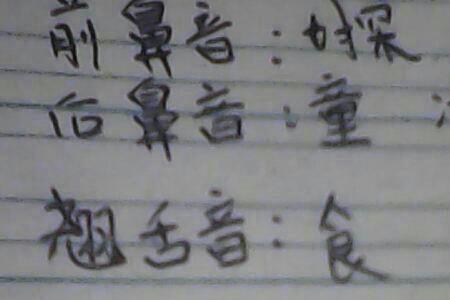 前鼻音:
后鼻音:童;
翘舌音:食